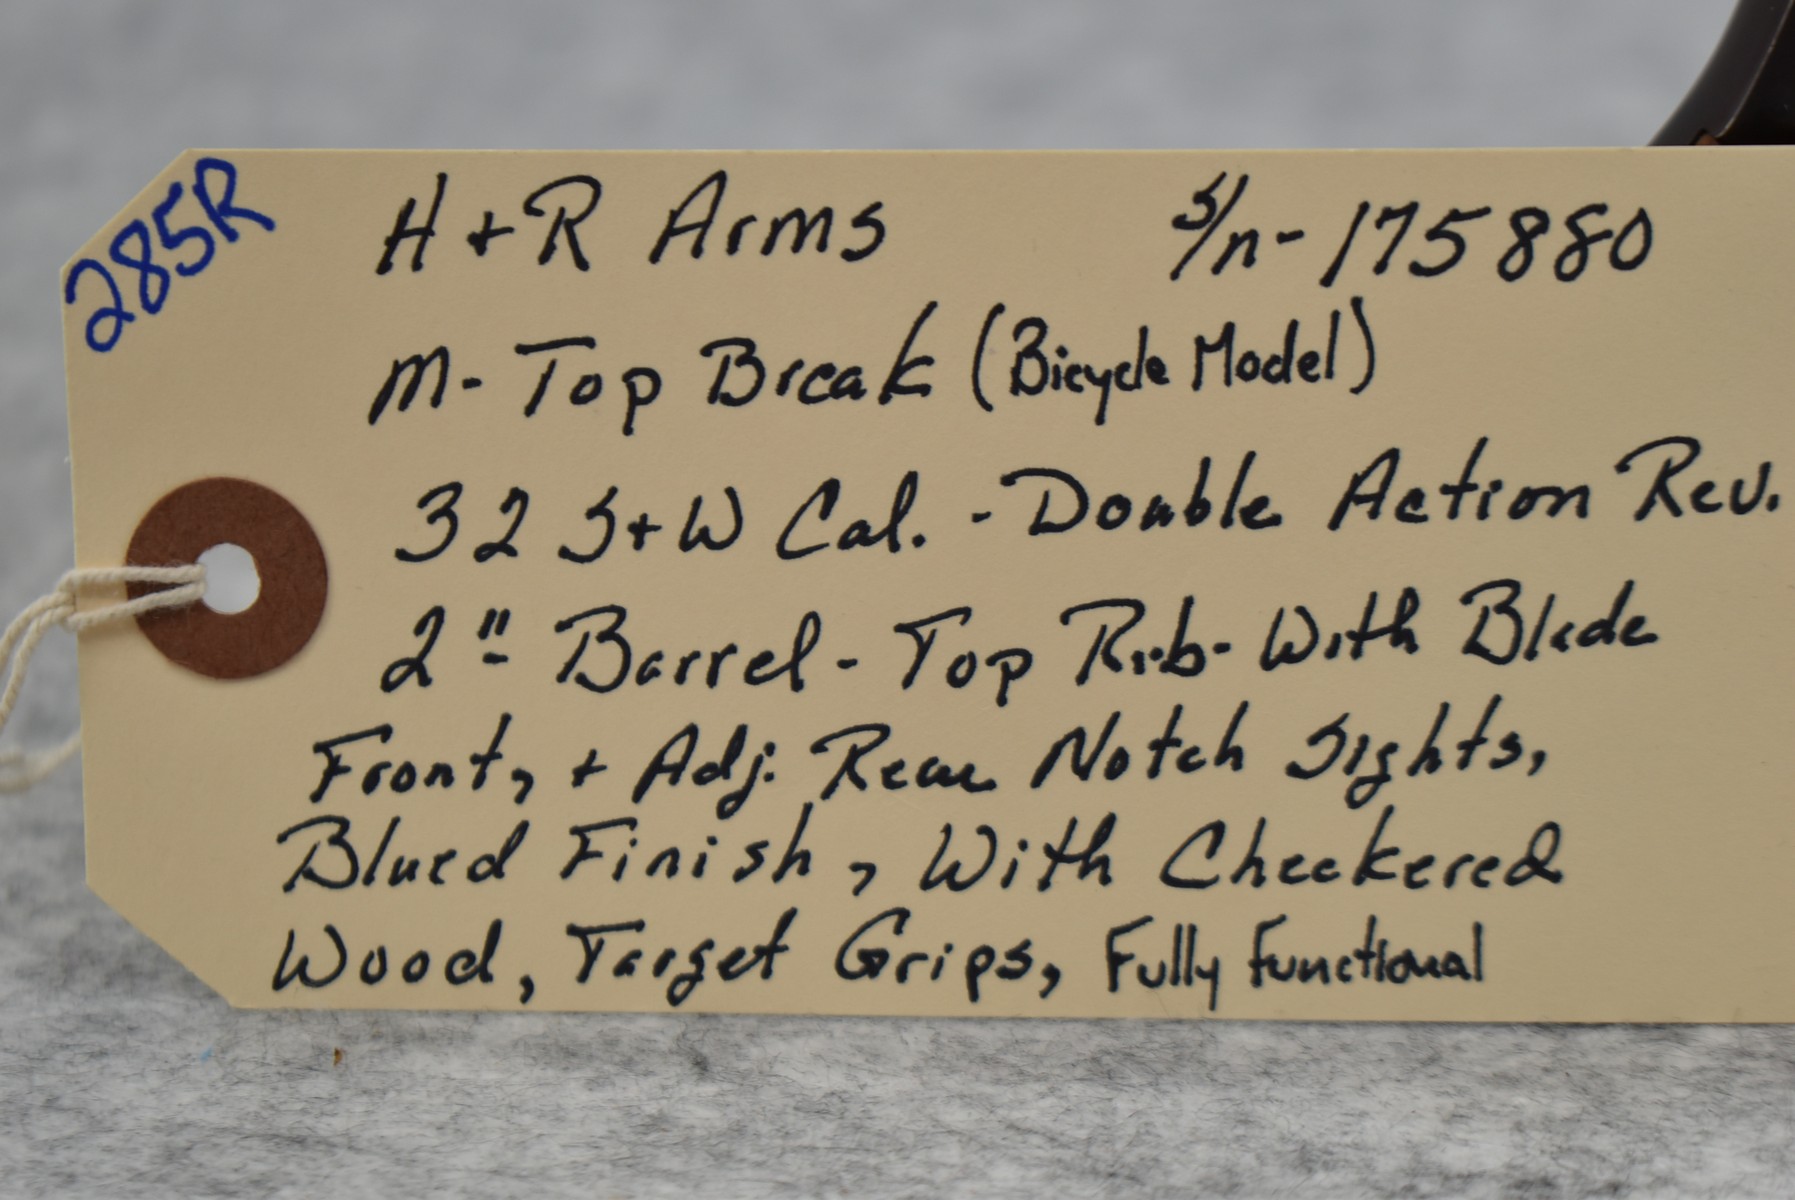 285R
H + R Arms S/n - 175880
M - Top Break (Bicycle Model)
32 S+W Cal. - Double Action Rev.
2" Barrel - Top Rib - With Blade
Front, + Adj. Rear Notch Sights,
Blued Finish, With Checkered
Wood, Target Grips, Fully Functional